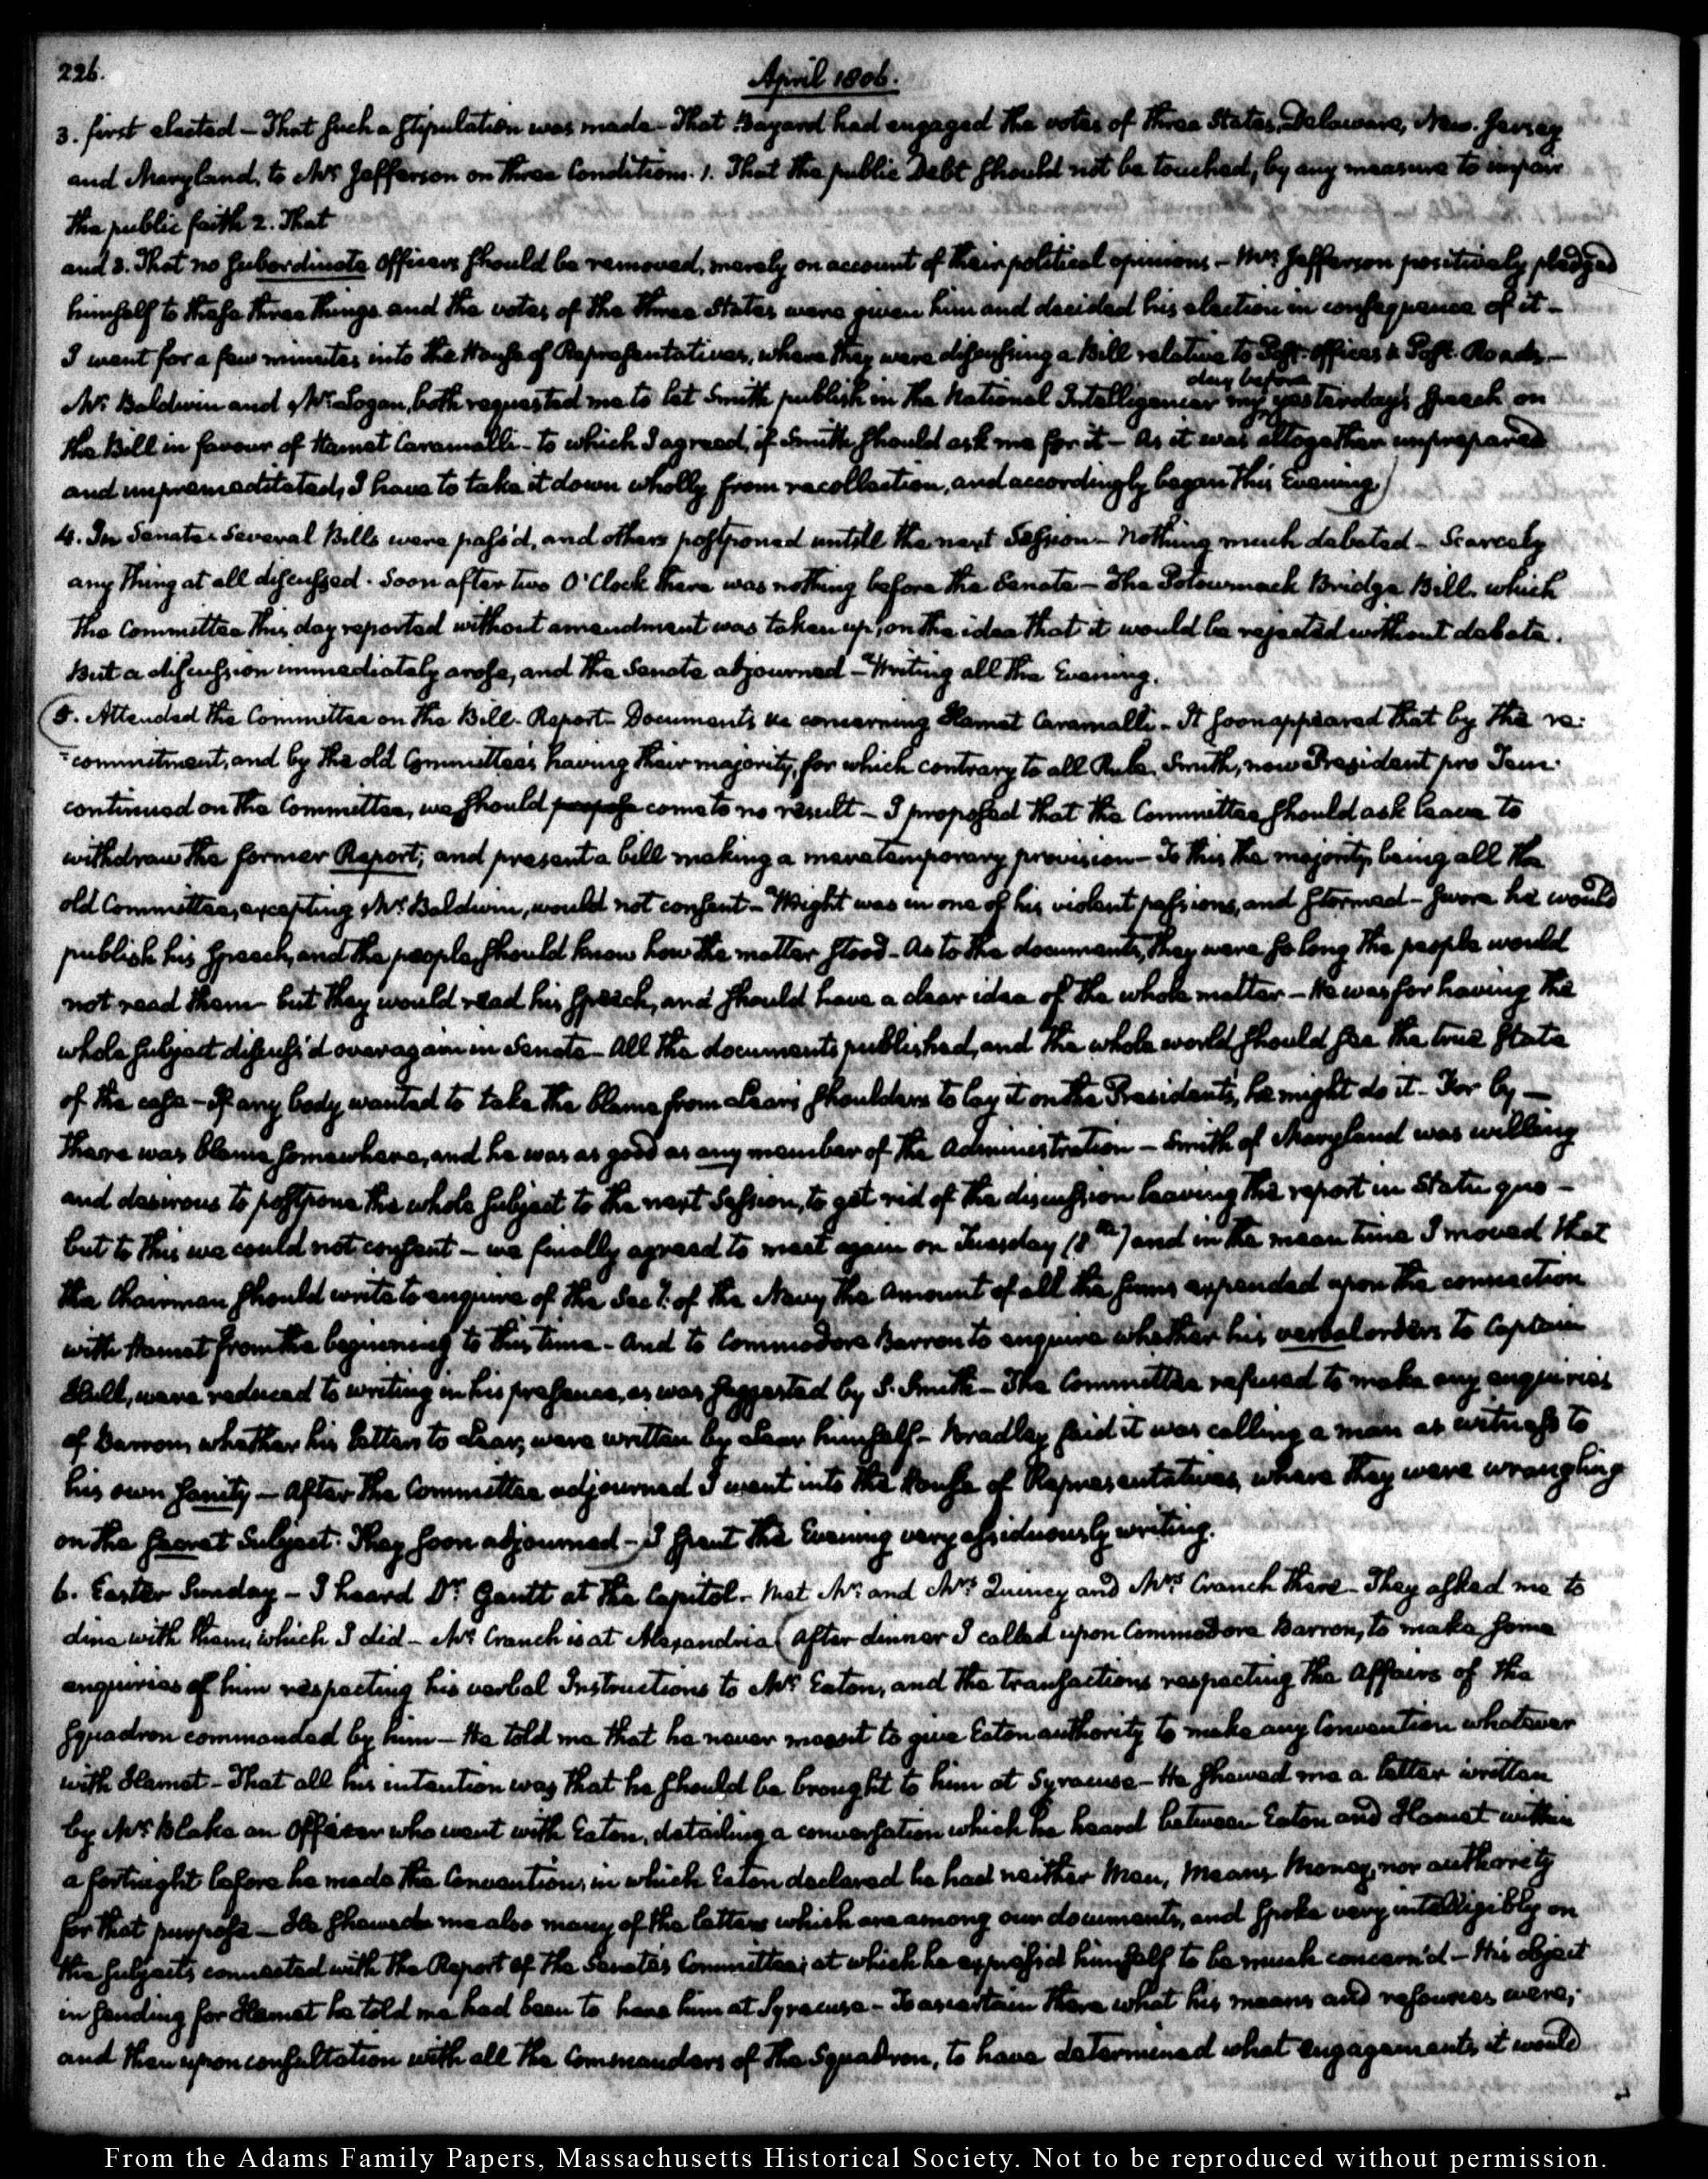 226.
April 1806.
3. first elected – That such a stipulation was made – That Bayard had engaged the votes of three States, Delaware, New-Jersey
and Maryland, to Mr Jefferson on three Conditions. 1. That the public Debt should not be touched, by any measure to impair
the public faith 2. That
and 3. That no subordinate officers should be removed, merely on account of their political opinions – Mr Jefferson positively pledged
himself to these three things and the votes of the three States were given him and decided his election in consequence of it –
I went for a few minutes into the House of Representatives, where they were discussing a Bill relative to Post-offices & Post-Roads. –
day before
Mr Baldwin and Mr Logan, both requested me to let Smith publish in the National Intelligencer my yesterday's speech on
the Bill in favour of Hamet Caramalli – to which I agreed, if Smith should ask me for it – As it was altogether unprepared
and unpremeditated, I have to take it down wholly from recollection, and accordingly began this Evening)
4. In Senate. Several Bills were pass'd, and others postponed untill the next Session – Nothing much debated – Scarcely
any thing at all discussed. Soon after two O'Clock there was nothing before the Senate – The Potowmack Bridge Bill, which
the Committee this day reported without amendment was taken up, on the idea that it would be rejected without debate.
But a discussion immediately arose, and the Senate adjourned – Writing all the Evening.
(5. Attended the Committee on the Bill – Report – Documents &c concerning Hamet Caramalli – It soon appeared that by the re-
-commitment, and by the old Committee's having their majority, for which contrary to all Rule, Smith, now President pro Tem:
continued on the Committee, we should propose come to no result – I proposed that the Committee should ask leave to
withdraw the former Report; and present a bill making a mere temporary provision – To this the majority being all the
old Committee, excepting Mr Baldwin, would not consent – Wright was in one of his violent passions, and stormed – swore he would
publish his speech, and the people should know how the matter stood – As to the documents, they were so long the people would
not read them – but they would read his speech, and should have a clear idea of the whole matter – He was for having the
whole subject discuss'd over again in Senate – All the documents published, and the whole world should see the true state
of the case – If any body wanted to take the blame from Lear's shoulders to lay it on the President's, he might do it – For by –
there was blame somewhere, and he was as good as any member of the Administration – Smith of Maryland was willing
and desirous to postpone the whole subject to the next Session, to get rid of the discussion leaving the report in Statu quo –
but to this we could not consent – we finally agreed to meet again on Tuesday (8th) and in the mean time I moved that
the Chairman should write to enquire of the Secy of the Navy the amount of all the sums expended upon the connection
with Hamet from the beginning to this time – And to Commodore Barron to enquire whether his verbal orders to Captain
Hull, were reduced to writing in his presence, as was suggested by S. Smith – The Committee refused to make any enquiries
of Barron, whether his letters to Lear, were written by Lear himself – Bradley said it was calling a man as witness to
his own sanity – After the Committee adjourned I went into the House of Representatives, where they were wrangling
on the secret subject. They soon adjourned –) I spent the Evening very assiduously writing.
6. Easter Sunday – I heard Dr Gantt at the Capitol – Met Mr and Mrs Quincy and Mrs Cranch there – They asked me to
dine with them, which I did – Mr Cranch is at Alexandria (After dinner I called upon Commodore Barron, to make some
enquiries of him respecting his verbal Instructions to Mr Eaton, and the transactions respecting the affairs of the
squadron commanded by him – He told me that he never meant to give Eaton authority to make any Convention whatever
with Hamet – That all his intention was that he should be brought to him at Syracuse – He shewed me a letter written
by Mr Blake an officer who went with Eaton, detailing a conversation which he heard between Eaton and Hamet within
a fortnight before he made the Convention, in which Eaton declared he had neither Men, Means, Money, nor authority
for that purpose – He shewed me also many of the letters which are among our documents, and spoke very intelligibly on
the subjects connected with the Report of the Senate's Committee; at which he express'd himself to be much concern'd – His object
in sending for Hamet he told me had been to have him at Syracuse – To ascertain there what his means and resources were;
and then upon consultation with all the Commanders of the Squadron, to have determined what engagements it would
From the Adams Family Papers, Massachusetts Historical Society. Not to be reproduced without permission.